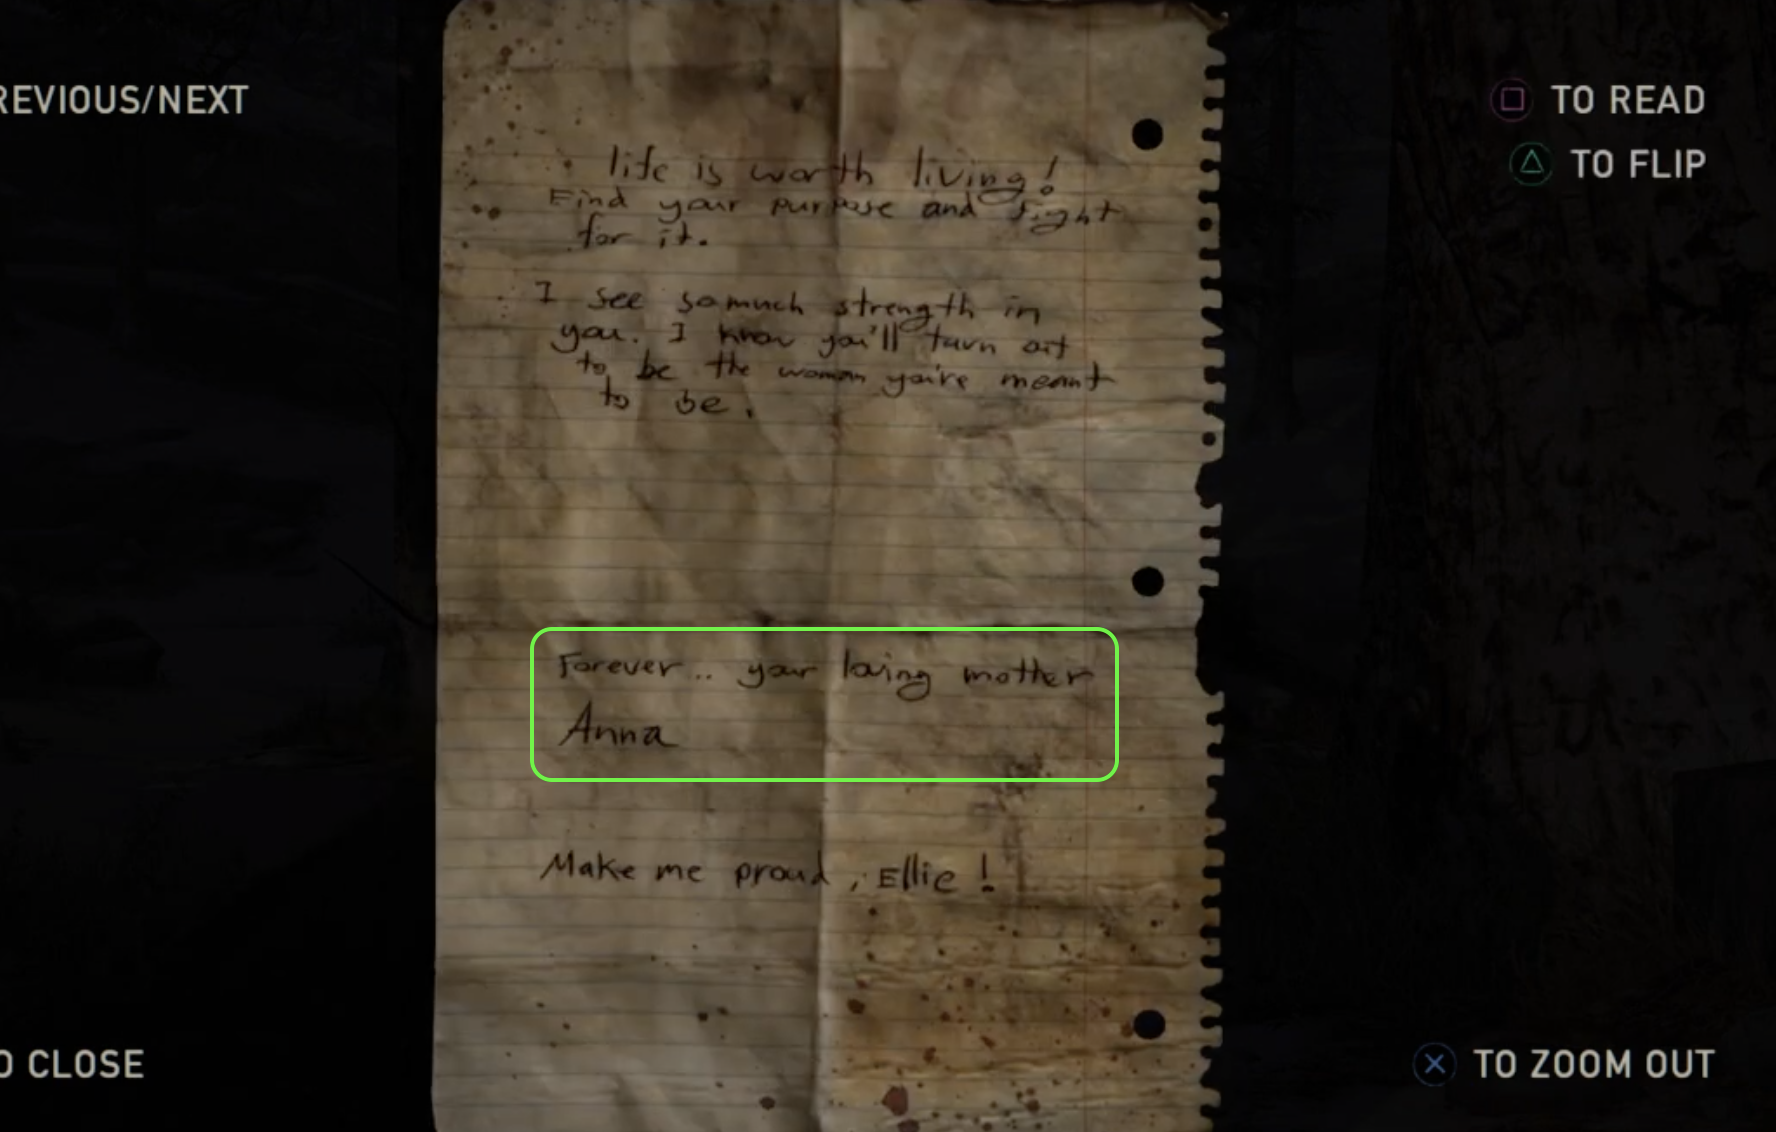 REVIOUS/NEXT
TO READ
TO FLIP
life is worth living!
Find your purpose and fight
for it.
I see so much strength in
you. I know you'll turn out
to be the woman you're meant
to be.
Forever.. your loving mother
Anna
Make me proud, Ellie!
O CLOSE
TO ZOOM OUT